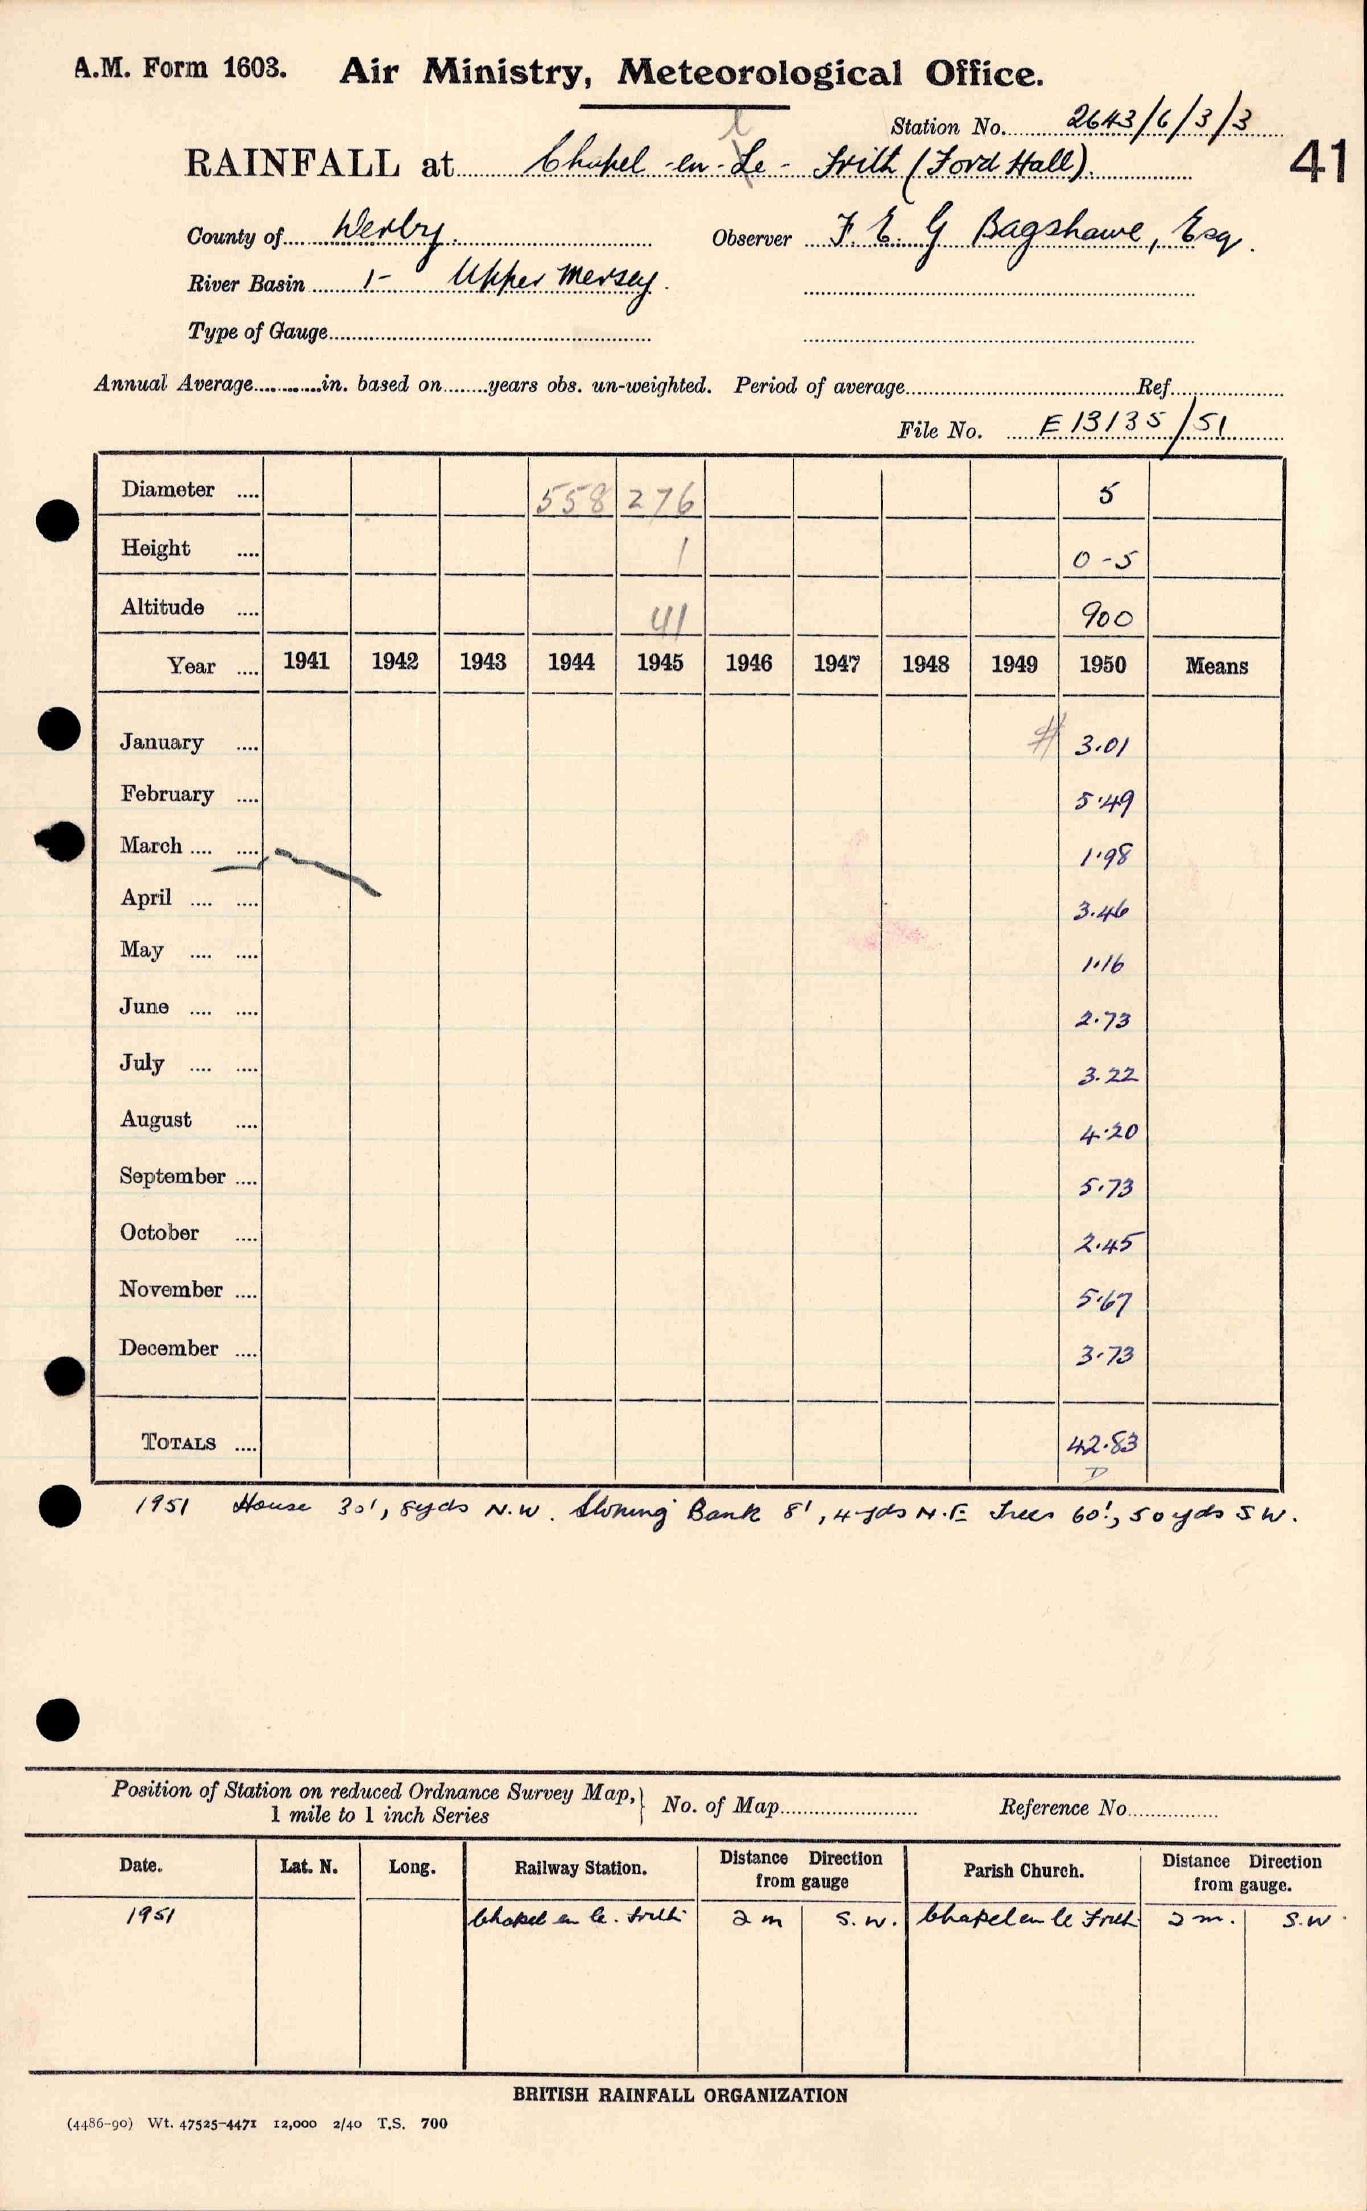 A.M. Form 1603. Air Ministry, Meteorological Office.
Station No. 2643/6/3/3
41
RAINFALL at Chapel-en-le-Frith (Ford Hall).
County of Derby. Observer F. E. G Bagshawe, Esq.
River Basin 1- Upper Mersey.
Type of Gauge
Annual Average in. based on years obs. un-weighted. Period of average Ref.
File No. E13135/51
Diameter .... 558 276 5
Height .... 1 0-5
Altitude .... 41 900
Year .... 1941 1942 1943 1944 1945 1946 1947 1948 1949 1950 Means
January .... # 3.01
February .... 5.49
March .... .... 1.98
April .... .... 3.46
May .... .... 1.16
June .... .... 2.73
July .... .... 3.22
August .... 4.20
September .... 5.73
October .... 2.45
November .... 5.67
December .... 3.73
TOTALS .... 42.83
D
1951 House 30', 8yds N.W. Sloping Bank 8', 4yds N.E Trees 60', 50yds S W.
Position of Station on reduced Ordnance Survey Map, 1 mile to 1 inch Series } No. of Map Reference No.
Date. Lat. N. Long. Railway Station. Distance Direction from gauge Parish Church. Distance Direction from gauge.
1951 Chapel en le. Frith 2 m S.W. Chapel en le Frith 2 m. S.W.
BRITISH RAINFALL ORGANIZATION
(4486-90) Wt. 47525-4471 12,000 2/40 T.S. 700